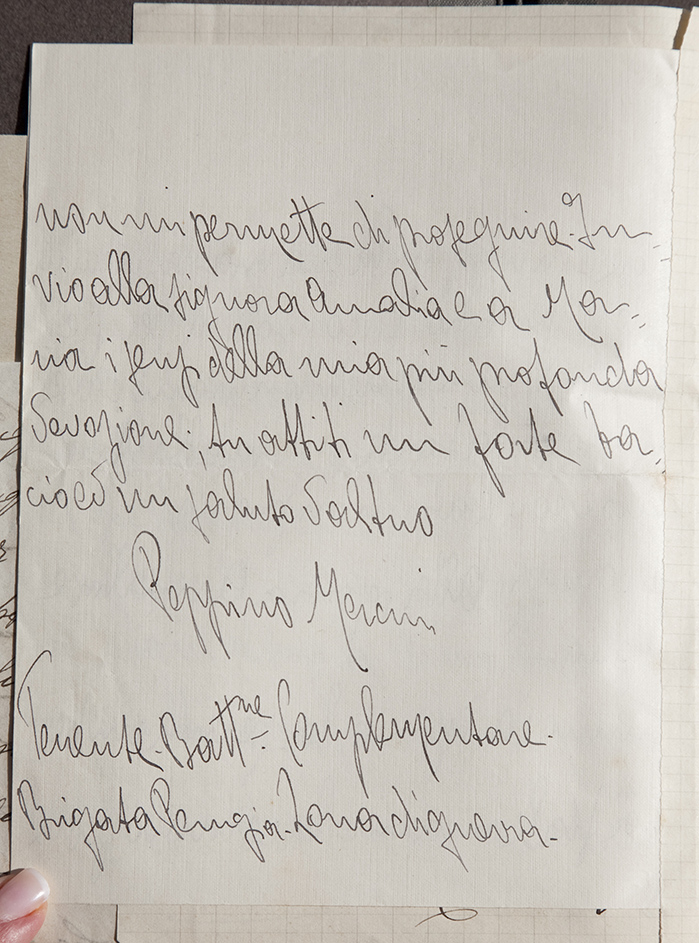 non mi permette di proseguire. In=
vio alla signora Amalia e a Ma=
ria i sensi della mia più profonda
devozione; tu abbiti un forte ba=
cio ed un saluto dal tuo
Peppino
Tenente. Batt.ne Complementare.
Brigata Perugia. Zona di guerra.